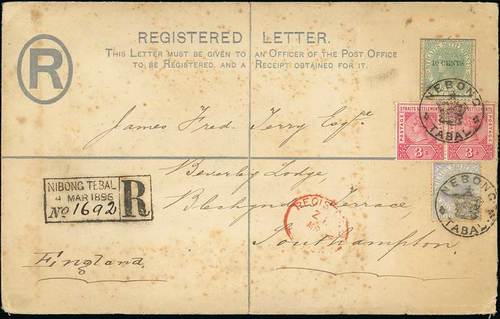 REGISTERED LETTER.
THIS LETTER MUST BE GIVEN TO AN OFFICER OF THE POST OFFICE
TO BE REGISTERED, AND A RECEIPT OBTAINED FOR IT.
R
10 CENTS
NEBONG
TABAL
POSTAGE STRAITS SETTLEMENTS
3c 3c
NEBONG
TABAL
James Fred. Terry Esqre
Beverley Lodge,
Terrace
Southampton.
England
NIBONG TEBAL
4 MAR 1896
No 1692
R
REGIS